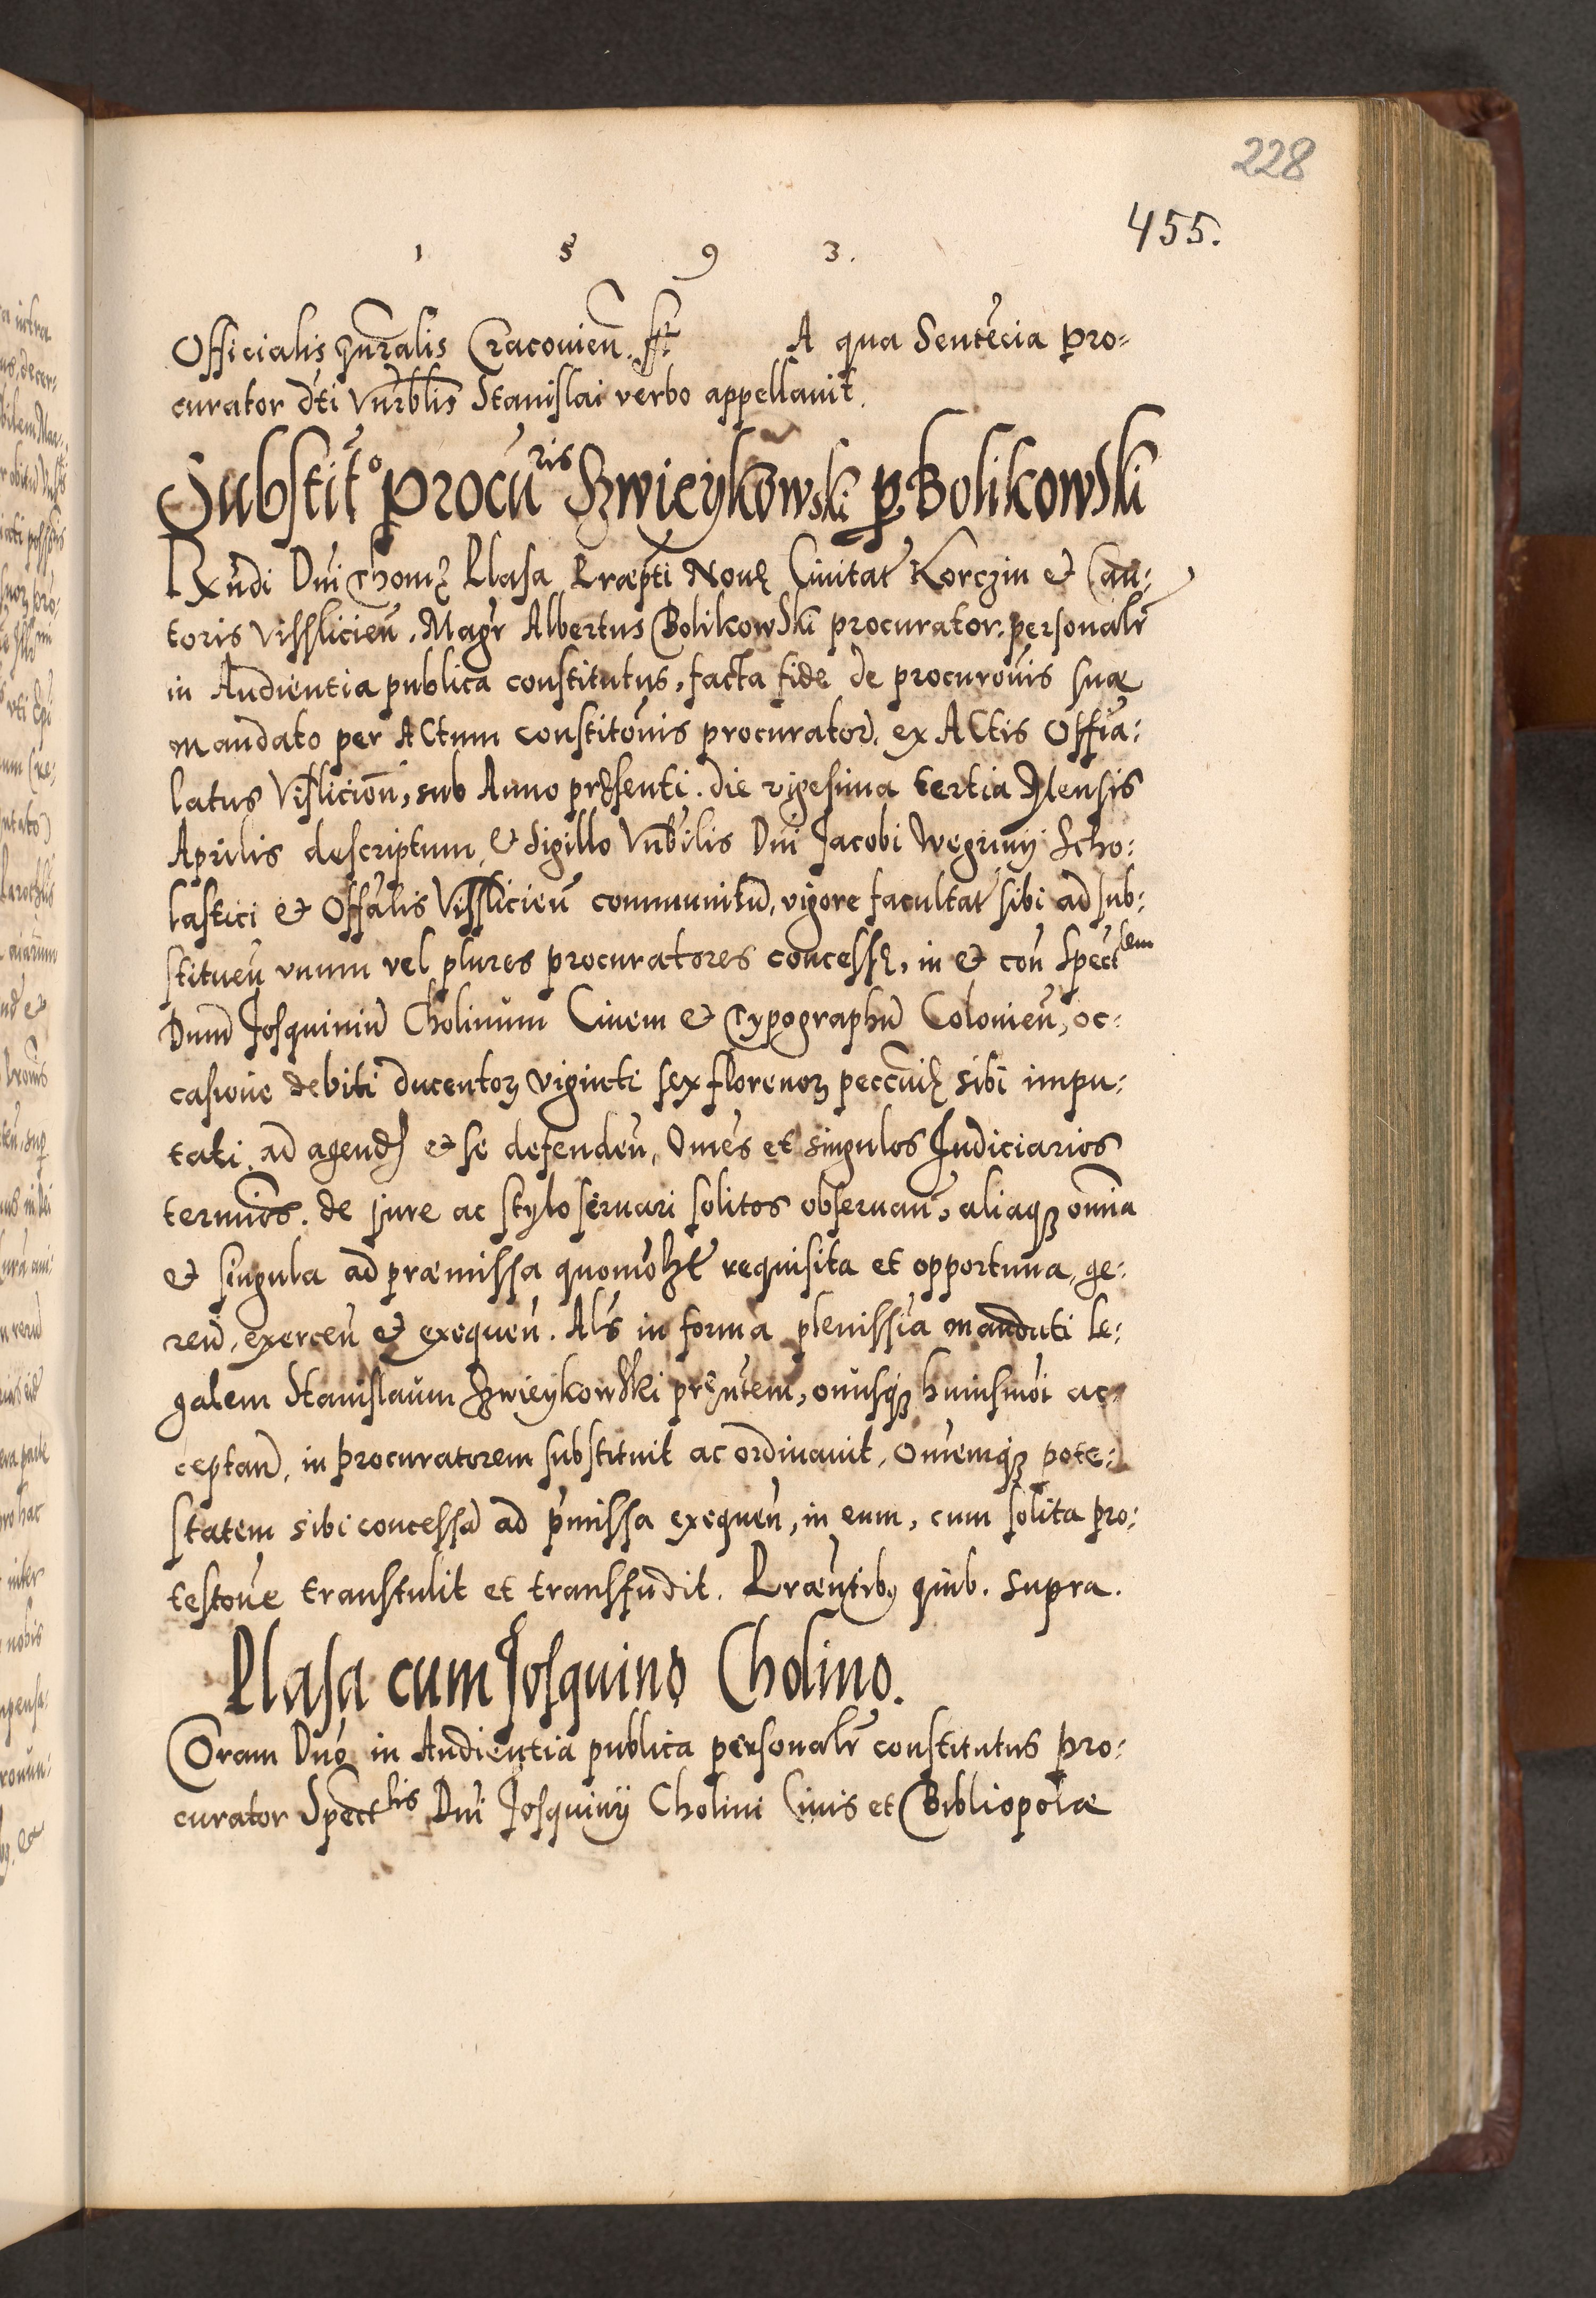 228
455.
1 5 9 3.
Officialis gnralis Cracovien. sst A qua Sentẽcia pro=
curator dti Vnrblis Stanislai verbo appellauit.
Substit̃o procuris Szwieykowski p. Bolikowski
Rxndi Dni Thomę Plasa Praepti Nouę Ciuitat Korczin et Can:
toris Visslicien. Magr Albertus Bolikowski procurator personalr
in Audientia publica constitutus, facta fide de procurõnis suae
mandato per Actum constitõnis procurator. ex Actis Offia:
latus Vislicien, sub Anno pręsenti. die vigesima tertia Mensis
Aprilis descriptum, et sigillo Vnbilis Dni Jacobi Wegrinij Scho:
lastici et Offalis Visslicien communitũ, vigore facultat sibi ad sub:
stituen vnum vel plures procuratores concessę, in et con Spectlem
Dnum Josquiniũ Cholinum Ciuem et Typographũ Colonien, oc:
casione debiti ducentorꝫ viginti sex florenorꝫ peccunię sibi impu:
tati, ad agend et se defenden, Omes et singulos Judiciarios
terminos. de jure ac stylo seruari solitos obseruan, aliaqꝫ omnia
et singula ad praemissa quomõlzt requisita et opportuna, ge:
ren, exercen et exequen. Als in forma plenissia mandati le:
galem Stanislaum Szwieykowski pręntem, onusqꝫ huiusmõi ac=
ceptan, in procuratorem substituit ac ordinauit, Omemqꝫ pote:
statem sibi concessã ad pmissa exequen, in eum, cum solita pro:
testõne transtulit et transfudit. Praentibꝫ quib. supra.
Plasa cum Josquino Cholino.
Coram Dnõ in Audientia publica personalr constitutus pro:
curator Spectlis Dni Josquinij Cholini Ciuis et Bibliopolae